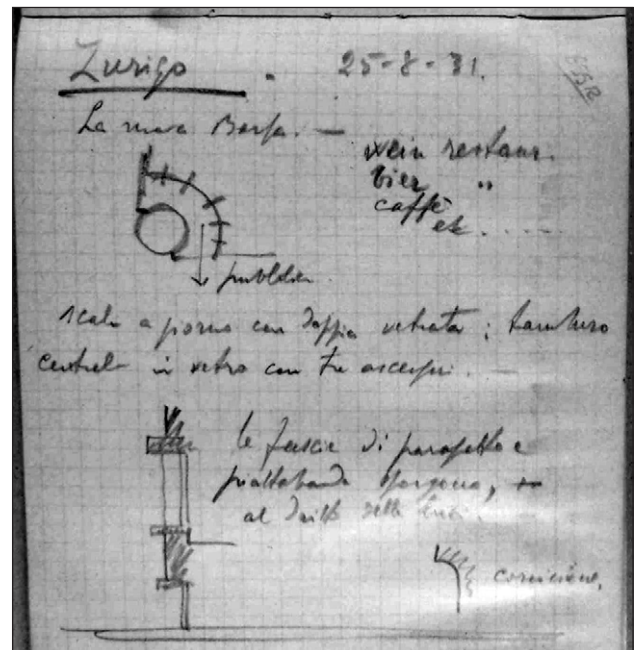 Zurigo. 25-8-31.
La nuova Borsa. —
wein restaur.
bier "
caffè
etc.....
pubblico.
scala a giorno con doppia vetrata; tamburo
centrale in vetro con tre ascensori. —
le fascie di parapetto e
piattabanda sporgono,
al delle luci.
cornicione.